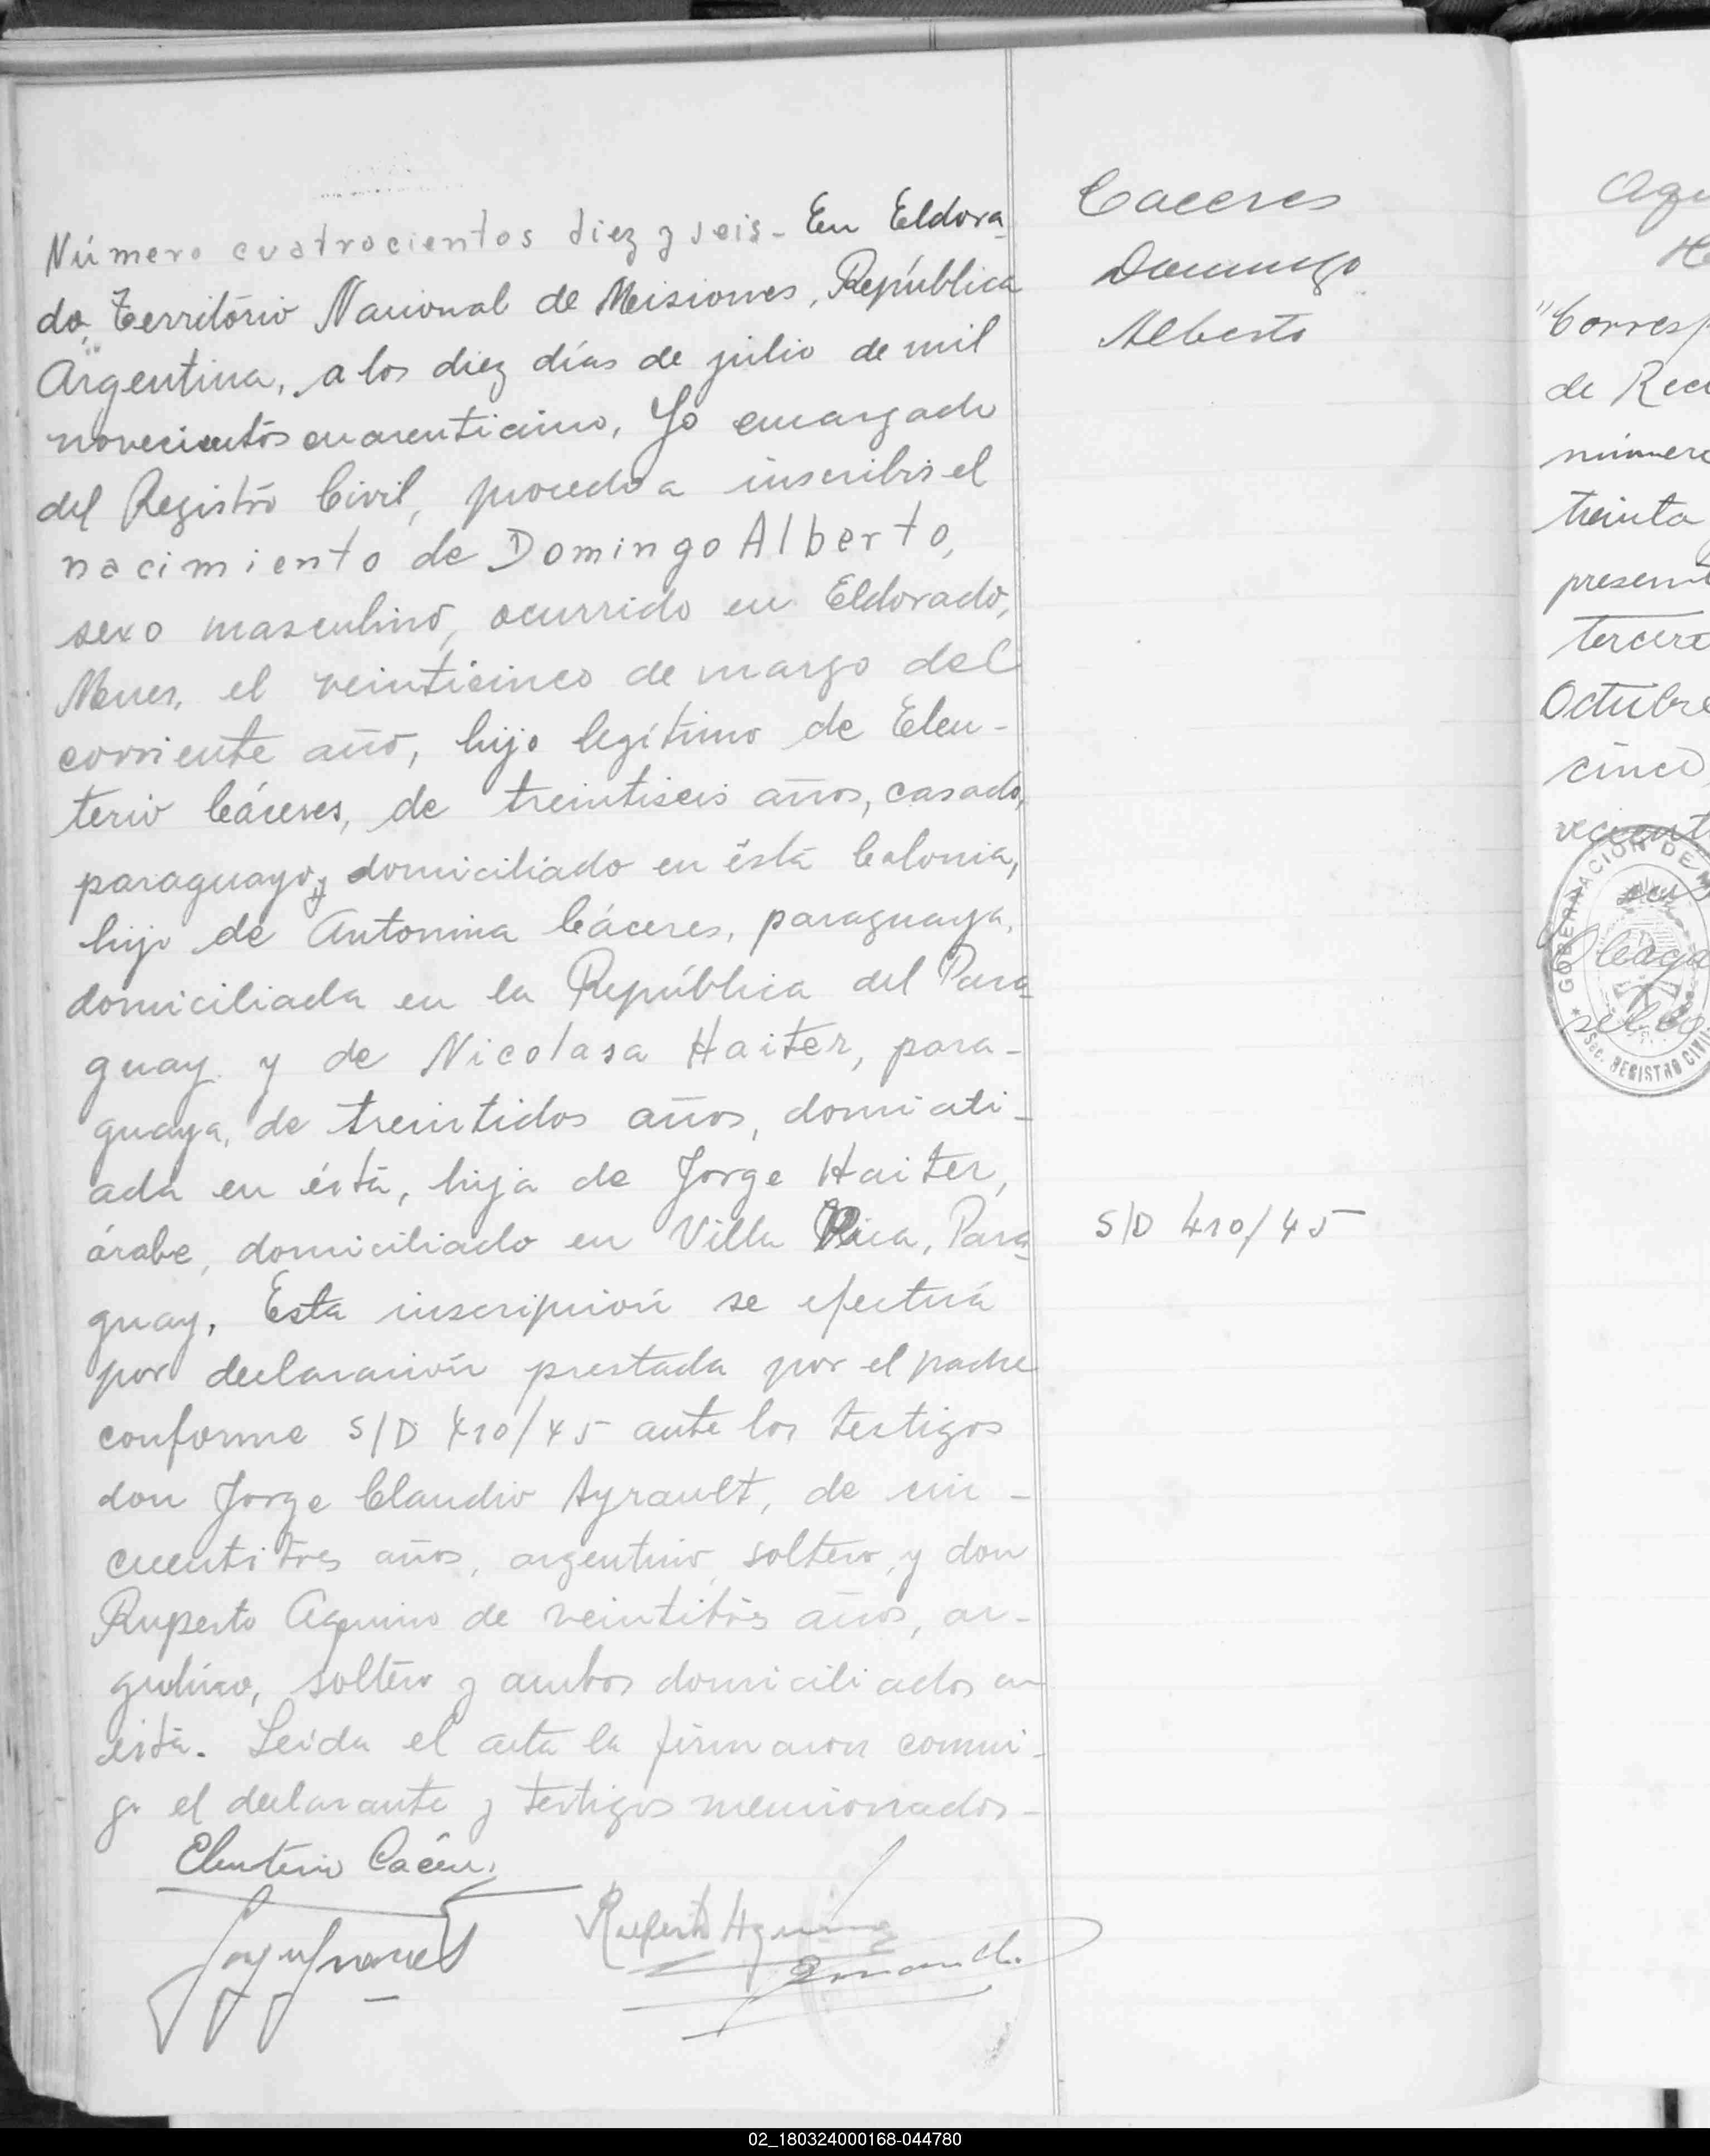 Número cuatrocientos diez y seis - En Eldora-
do, Território Nacional de Misiones, República
Argentina, a los diez días de julio de mil
novecientos cuarenticinco, Yo encargado
del Registro Civil, procedo a inscribir el
nacimiento de Domingo Alberto,
sexo masculino, ocurrido en Eldorado,
Mnes, el veinticinco de marzo del
corriente año, hijo legítimo de Eleu-
terio Cáceres, de treintiseis años, casado,
paraguayo, y domiciliado en ésta Colonia,
hijo de Antonina Cáceres, paraguaya,
domiciliada en la República del Para-
guay y de Nicolasa Haiter, para-
guaya, de treintidos años, domicili-
ada en ésta, hija de Jorge Haiter,
árabe, domiciliado en Villa Rica, Para-
guay, Esta inscripción se efectuá
por declaración prestada por el padre
conforme S/D 410/45 ante los testigos
don Jorge Claudio Ayrault, de cin-
cuentitres años, argentino, soltero, y don
Ruperto Aquino de veintitrés años, ar-
gentino, soltero y ambos domiciliados en
ésta. Leida el acta la firmaron conmi-
go el declarante y testigos mencionados -
Eleuterio Cáceres
Ruperto Aquino
Caceres
Domingo
Alberto
S/D 410/45
"Corresp
de Rec
número
treinta
present
tercera
Octubre
cinco,
GOBERNACION DE M
Sec. REGISTRO CIVIL
02_180324000168-044780